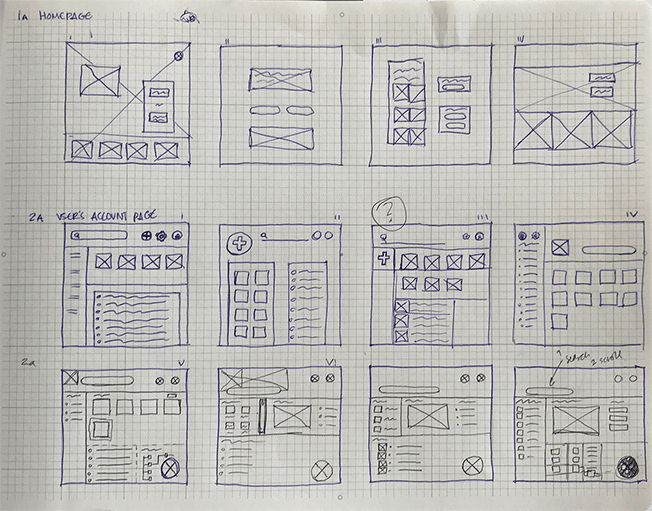 1A HOMEPAGE
I II III IV
2A USER'S ACCOUNT PAGE I II III IV
?
2a V VI
? search
2 scroll